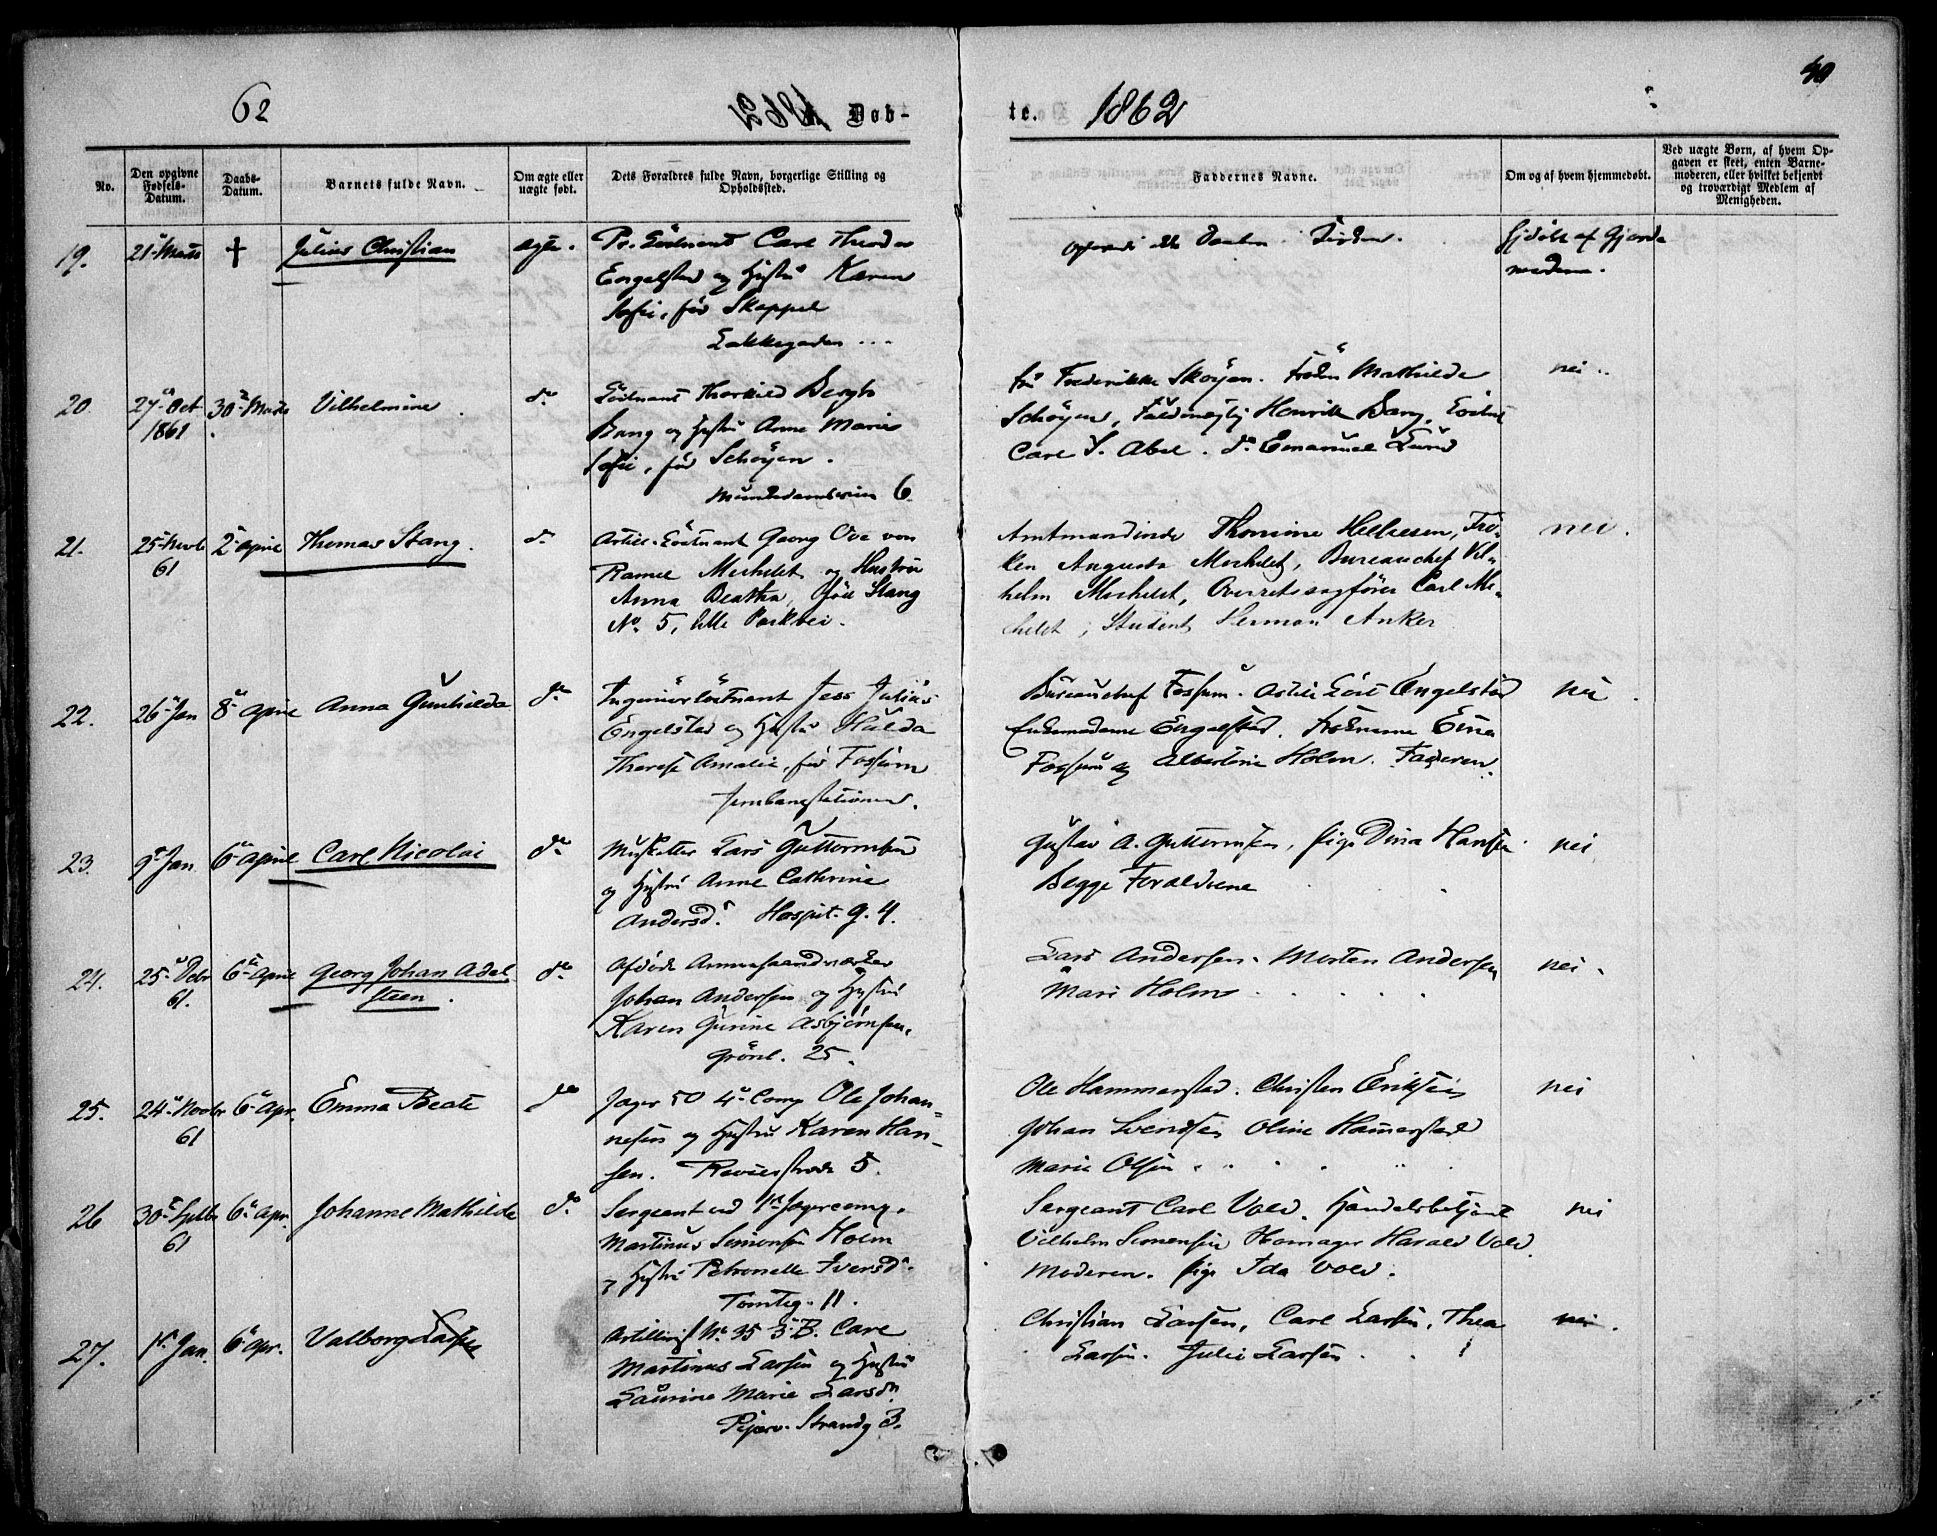 62
1862 Døb-
te. 1862
40
No.
Den opgivne Fødsels-Datum.
Daabs-Datum.
Barnets fulde Navn.
Om ægte eller uægte født.
Dets Forældres fulde Navn, borgerlige Stilling og Opholdssted.
Faddernes Navne.
Om og af hvem hjemmedøbt.
Ved uægte Børn, af hvem Opgaven er skeet, enten Barnemoderen, eller hvilket bekjendt og troværdigt Medlem af Menigheden.
19. 21 Marts † Julius Christian ægte. Pr. Löitnant Carl Theodor
Engelstad og Hustru Karen
Sofie, fød Skappel
Lakkegaden
Gjordemoderen.
20. 27 Oct 1861 30 Marts Vilhelmine do Löitnant Thorkild Bergh
Bang og Hustru Anne Marie
Sofie, fød Schøyen.
Munkedamsveien 6
Fru Frederikke Skøyen. Frøken Mathilde
Schøyen, Fuldmægtig Henrik Bang,
Carl S. Abel. do Emanuel Lund
nei
21. 25 Novb 61 2 April Thomas Stang. do Artill. Löitnant Georg Ove von
Ramel Michelet og Hustru
Anna Beatha, fød Stang
No 5, lille Parkvei.
Amtmandinde Thomine Hellesen, Frø-
ken Augusta Michelet, Bureauchef Vil-
helm Michelet, Overretssagfører Carl Mi-
chelet, Student Herman Anker
nei.
22. 26 Jan 8 April Anna Gunhilda do Ingeniörlöitnant Jess Julius
Engelstad og Hustru Hulda
Therese Amalie, fød Fossum
Jernbanestationen.
Bureauchef Fossum. Artill Löit Engelstad
Enkemadame Engelstad. Frøknerne
Fossum og Albertine Holm. Faderen.
nei.
23. 9 Jan 6 April Carl Nicolai do Musketter Lars Guttormsen
og Hustru Anne Cathrine
Andersd. Hospit. g. 4.
Gustav A. Guttormsen, Pige Dina Hansen
Begge Forældrene
nei
24. 25 Debr 61. 6 April Georg Johan Adel
steen. do Afdøde
Johan Andersen og Hustru
Karen Gurine Asbjørnsen.
Grönl. 25.
Lars Andersen. Morten Andersen
Mari Holm
nei.
25. 24 Novbr 61 6 Apr. Emma Beate do Jæger 50 4 Comp Ole Johan-
nesen og Hustru Karen Han-
sen. Revierstræde 5.
Ole Hammerstad. Christen Eriksen
Johan Svendsen Oline Hamerstad
Marie Olsen
nei
26 30 Septbr 61 6 Apr. Johanne Mathilde do Sergeant ved 1 Jægercomp.
Martinus Simonsen Holm
og Hustru Petronelle Iversd.
Tomteg. 11.
Sergeant Carl Vold. Handelsbetjent
Vilhelm Simensen Harald Vold.
Moderen. Pige Ida Vold.
nei
27. 1 Jan. 6 Apr. Valborg Larsen Artillerist No 35 3 B. Carl
Martinus Larsen og Hustru
Laurine Marie Larsdr.
Piperv. Strandg 3.
Christian Larsen, Carl Larsen, Thea
Larsen. Julie Larsen
nei.